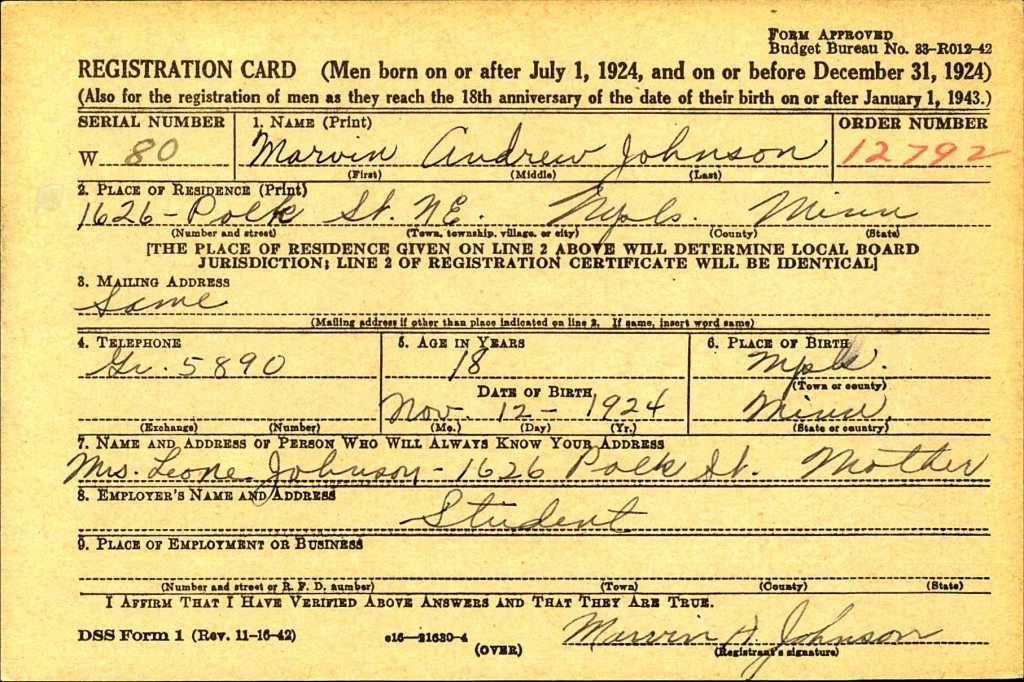 FORM APPROVED
Budget Bureau No. 33-R012-42
REGISTRATION CARD (Men born on or after July 1, 1924, and on or before December 31, 1924)
(Also for the registration of men as they reach the 18th anniversary of the date of their birth on or after January 1, 1943.)
SERIAL NUMBER 1. NAME (Print) ORDER NUMBER
W 80 Marvin Andrew Johnson 12792
(First) (Middle) (Last)
2. PLACE OF RESIDENCE (Print)
1626 - Polk St. NE. Mpls. Minn
(Number and street) (Town, township, village, or city) (County) (State)
[THE PLACE OF RESIDENCE GIVEN ON LINE 2 ABOVE WILL DETERMINE LOCAL BOARD
JURISDICTION; LINE 2 OF REGISTRATION CERTIFICATE WILL BE IDENTICAL]
3. MAILING ADDRESS
Same
(Mailing address if other than place indicated on line 2. If same, insert word same)
4. TELEPHONE 5. AGE IN YEARS 6. PLACE OF BIRTH
Gr. 5890 18 Mpls.
(Town or county)
DATE OF BIRTH
Nov. 12 - 1924 Minn.
(Exchange) (Number) (Mo.) (Day) (Yr.) (State or country)
7. NAME AND ADDRESS OF PERSON WHO WILL ALWAYS KNOW YOUR ADDRESS
Mrs. Leone Johnson - 1626 Polk St. Mother
8. EMPLOYER'S NAME AND ADDRESS
Student
9. PLACE OF EMPLOYMENT OR BUSINESS
(Number and street or R. F. D. number) (Town) (County) (State)
I AFFIRM THAT I HAVE VERIFIED ABOVE ANSWERS AND THAT THEY ARE TRUE.
DSS Form 1 (Rev. 11-16-42) c16—21630-4 Marvin A. Johnson
(OVER) (Registrant's signature)